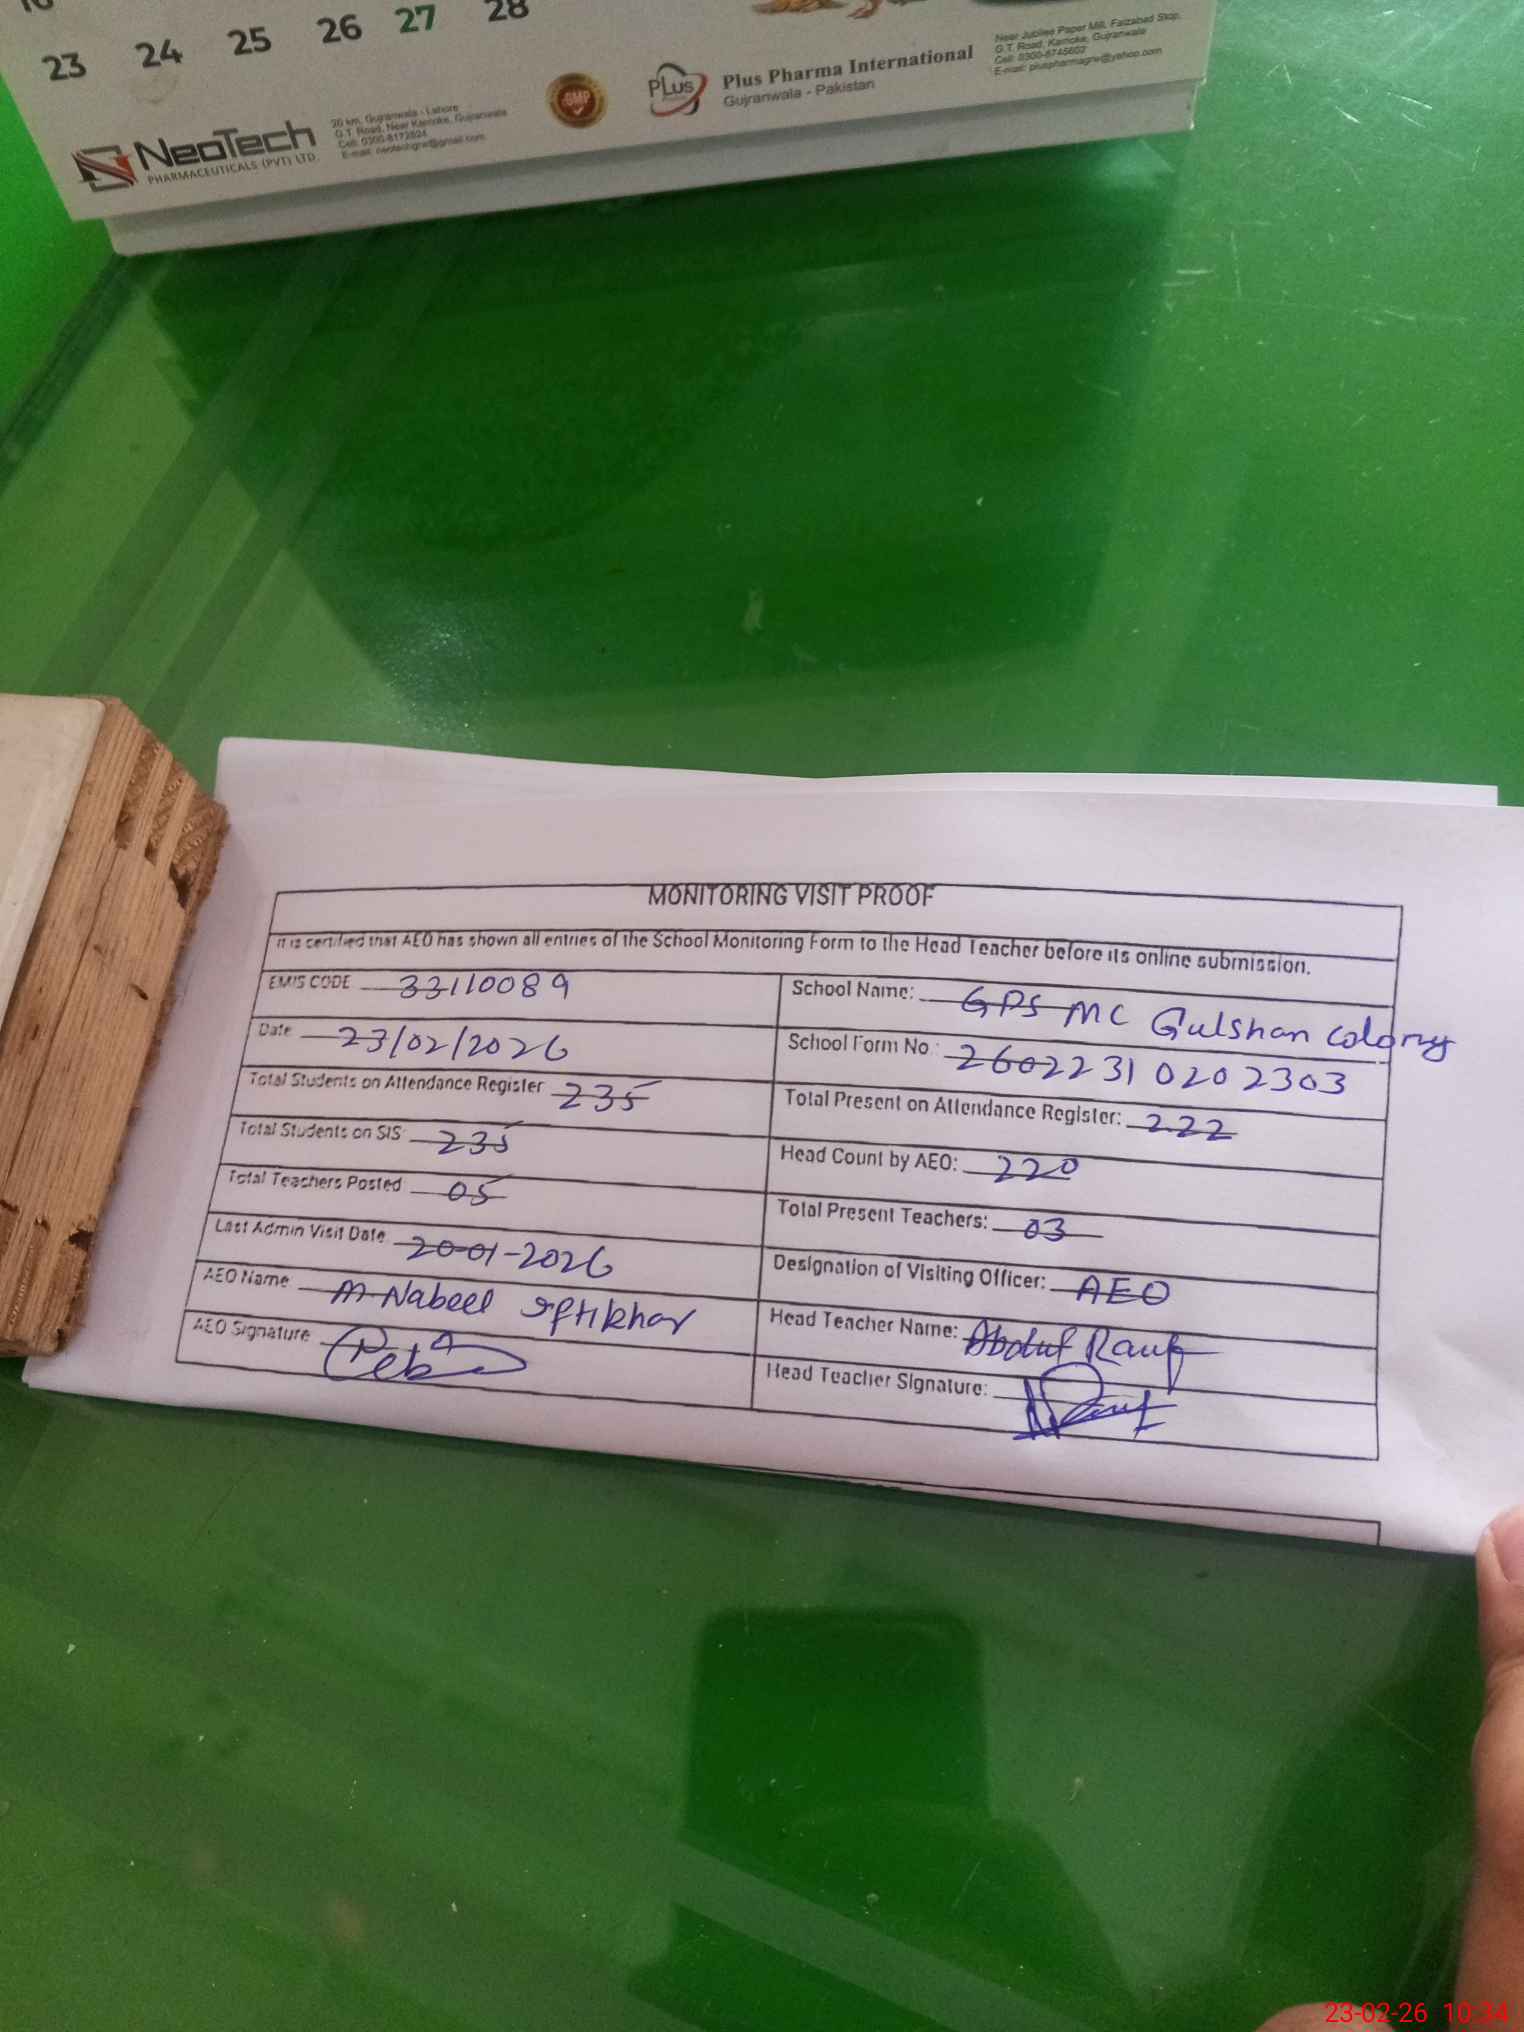 23 24 25 26 27 28
NeoTech
PHARMACEUTICALS (PVT) LTD.
20 km, Gujranwala - Lahore
G.T. Road, Near Kamoke, Gujranwala
Cell: 0300-8172824
E-mail: neotechgrw@gmail.com
GMP
PLus
Plus Pharma International
Gujranwala - Pakistan
Near Jubilee Paper Mill, Faizabad Stop,
G.T. Road, Kamoke, Gujranwala
Cell: 0300-8745602
E-mail: pluspharmagrw@yahoo.com
MONITORING VISIT PROOF
It is certified that AEO has shown all entries of the School Monitoring Form to the Head Teacher before its online submission.
EMIS CODE 33110089
School Name: GPS MC Gulshan Colony
Date 23/02/2026
School Form No.: 26022310202303
Total Students on Attendance Register 235
Total Present on Attendance Register: 222
Total Students on SIS: 235
Head Count by AEO: 220
Total Teachers Posted 05
Total Present Teachers: 03
Last Admin Visit Date 20-01-2026
Designation of Visiting Officer: AEO
AEO Name: M Nabeel Iftikhar
Head Teacher Name: Abdul Rauf
AEO Signature
Head Teacher Signature:
23-02-26 10:34